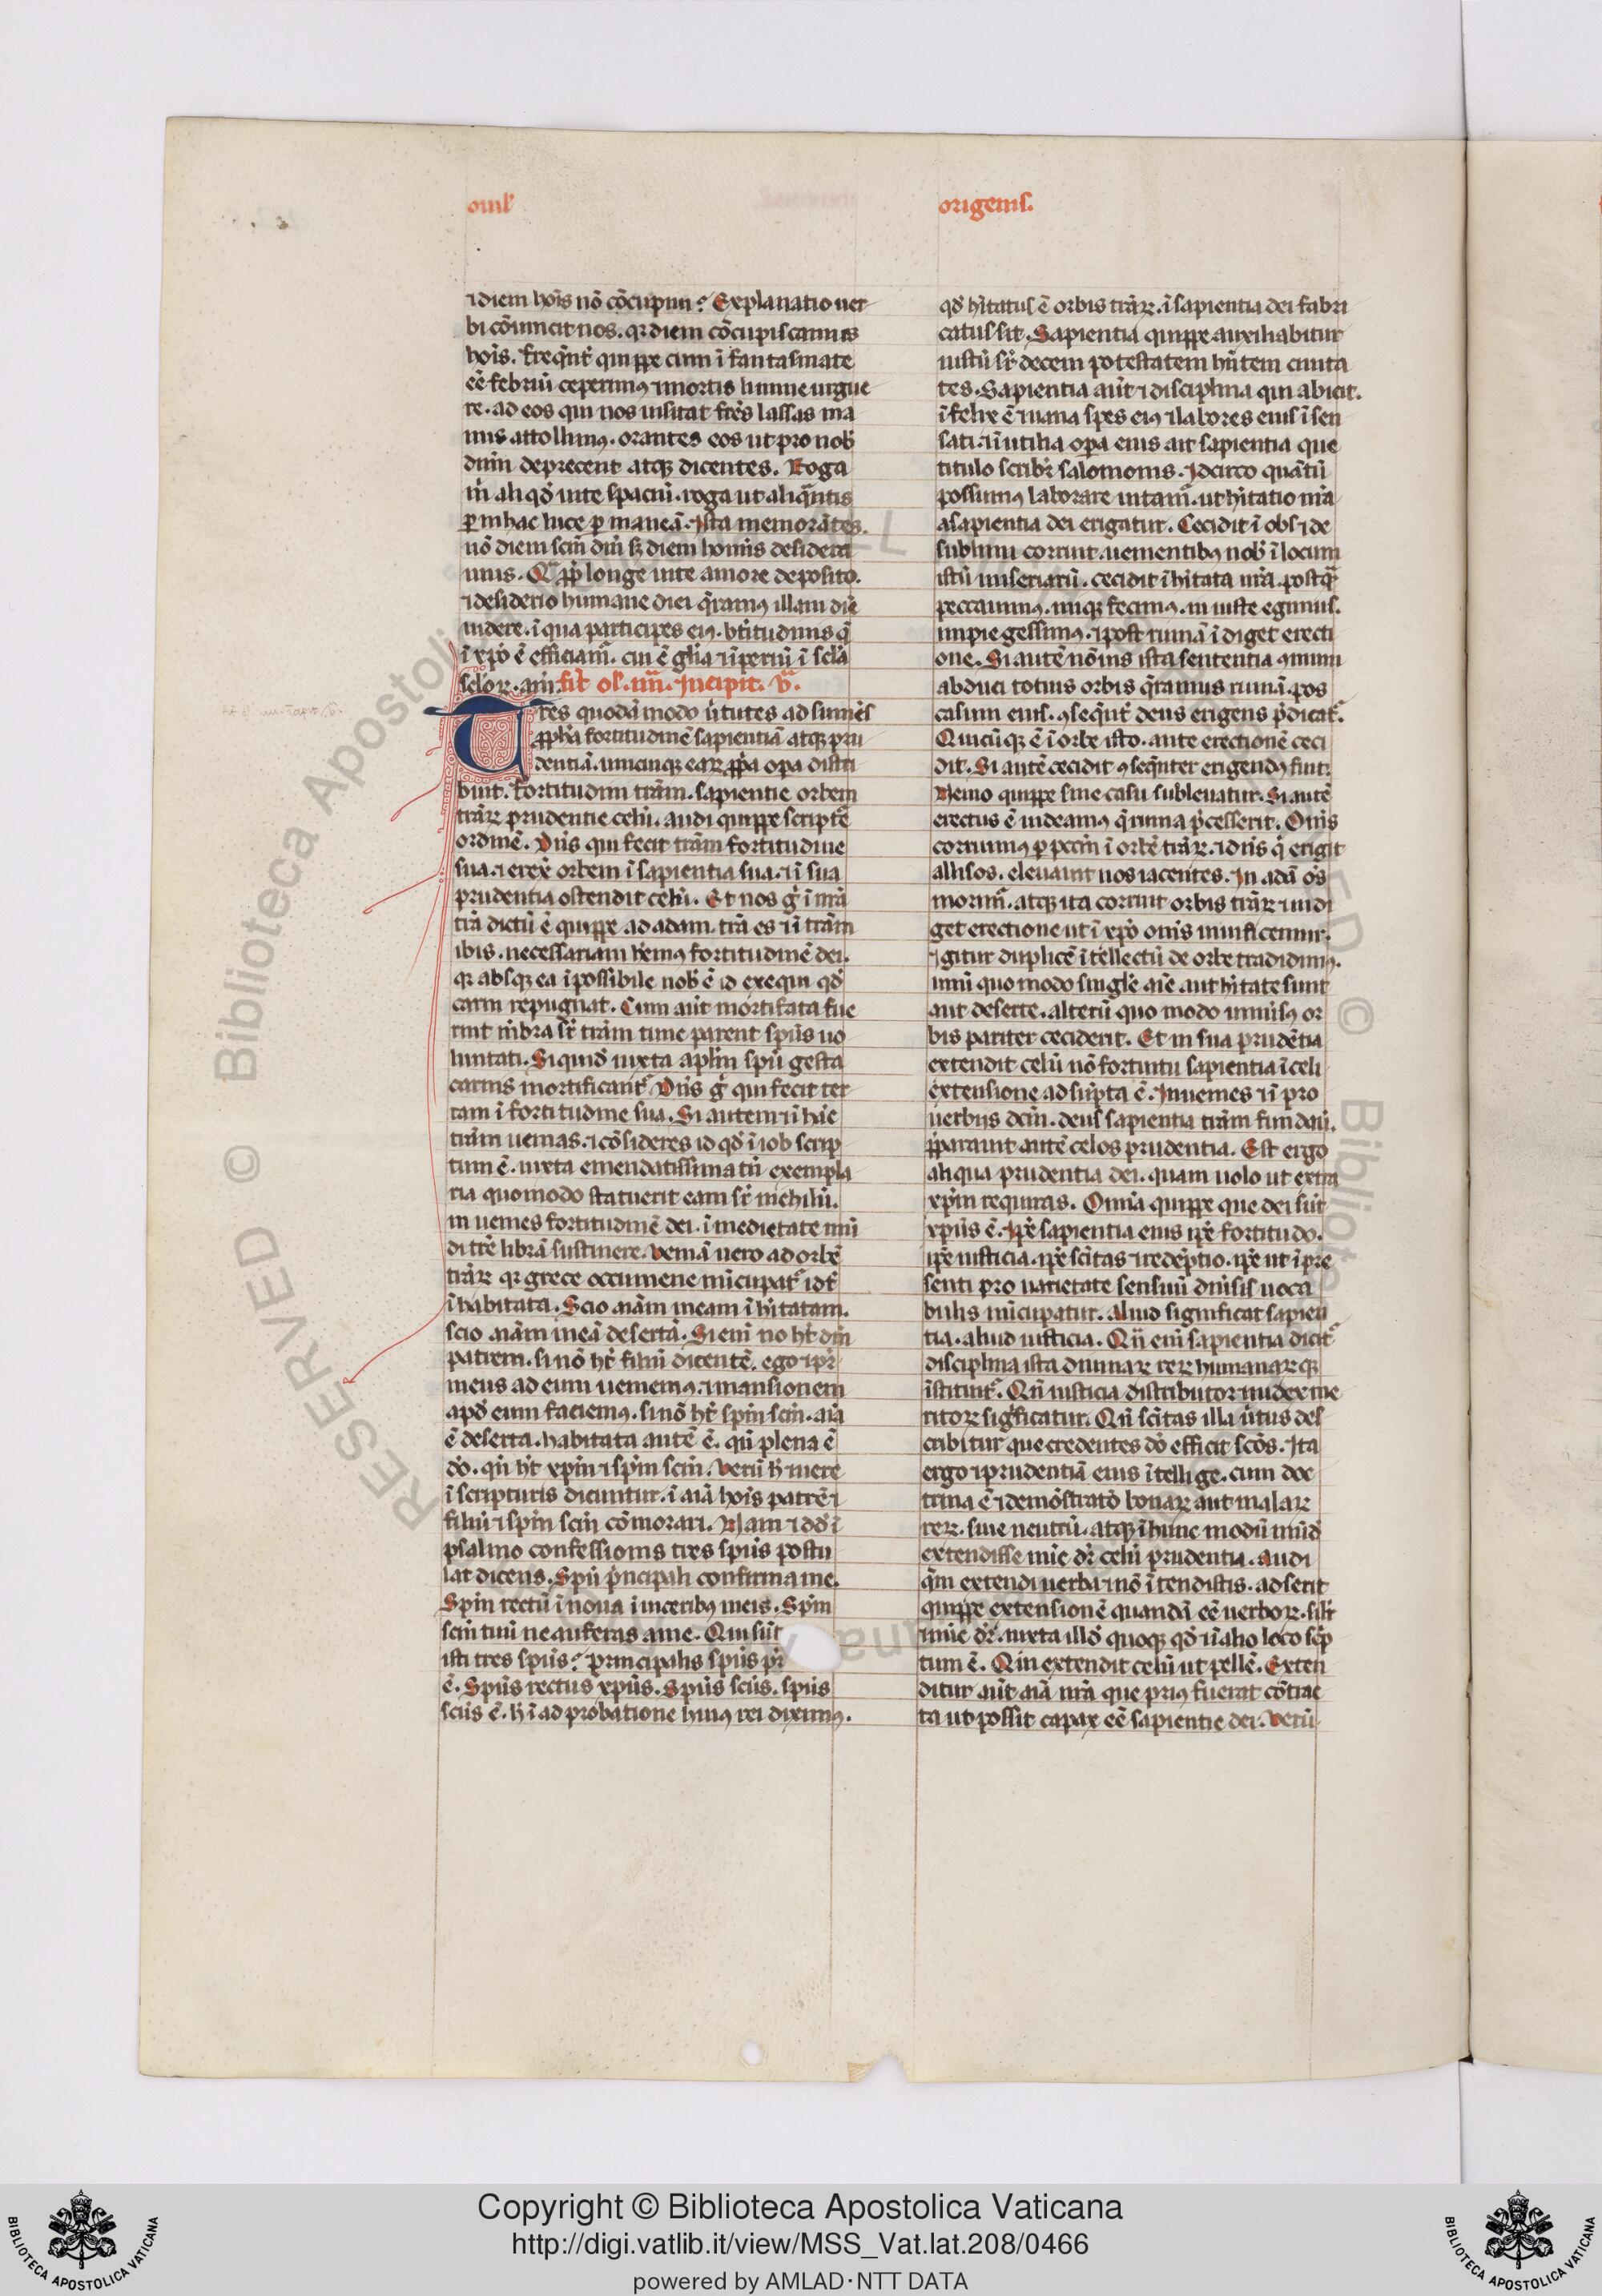 omĺ
origenis.
⁊ diem hoı̄s nō cōcupiui? Explanatio uer
bi cōiuncit nos. qꝛ diem cōcupiscamus
hoı̄s. freqn̄t̕ quippe cum ı̄ fantasmate
eē febriū ceperimꝰ ⁊ mortis limine urgue
re. ad eos qui nos uisitāt frēs lassas ma
nus attollimꝰ. orantes eos ut pro nob̕
dūm deprecent̕ atqꝫ dicentes. Roga
m̄ aliqd̕ uite spaciū. roga ut aliqn̄tis
ꝑ in hac luce ꝑ maneā. Ista memorātes.
nō diem scm̄ dm̄ sꝫ diem hominis desidera
mus. Qᵃ ꝓpt̕ longe uite amore deposito.
⁊ desiderio humane diei q̄ramꝰ illam diē
uidere. ı̄ qua participes eiꝰ. bt̄itudinis q̄
ı̄ xp̄o ē efficiam̄. cui ē gl̄ia ⁊ ı̄periū ı̄ scl̄a
scl̄oꝝ. am̄. fı̄t oḿ. iiii. Incipit. v.
Tres quodā modo ūtutes ad sumēs
ꝓph̄a fortitudinē sapientiā atqꝫ pru
dentiā. unicuiqꝫ eaꝝ ꝓp̄a opa distri
buit. fortitudini trām. sapientie orbem
trāꝝ prudentie celū. audi quippe scriptē
ordinē. Dn̄s qui fecit trām fortitudine
sua. ⁊ erex̄ orbem ı̄ sapientia sua. ⁊ ı̄ sua
prudentia ostendit celū. Et nos gͥ ı̄ nr̄a
trā dictū ē quippe ad adam. trā es ⁊ ı̄ trām
ibis. necessariam hēmꝰ fortitudinē dei.
qꝛ absqꝫ ea ı̄possibile nob̕ ē id exequi qd̕
carni repugnat. Cum aūt mortifata fue
rint mb̄ra sr̄ trām tunc parent spūs uo
luntati. Siquid̕ iuxta apl̄m spū gesta
carnis mortificant̕. Dn̄s gͥ qui fecit ter
ram ı̄ fortitudine sua. Si autem ⁊ ı̄ hāc
trām uenias. ⁊ cōsideres id qd̕ ı̄ iob scrip
tum ē. iuxta emendatissima tn̄ exempla
ria quomodo statuerit eam sr̄ nichilū.
in uenies fortitudinē dei. ı̄ medietate mū
di trē librā sustinere. Veniā uero ad orbē
trāꝝ qꝛ grece occumene nūcupat̕ idt̄
ı̄habitata. Scio aiām meam ı̄ hı̄tatam.
scio aiām meā desertā. Si enı̄ nō ht̄ dm̄
patrem. si nō ht̄ filiū dicentē. ego ⁊ pr̄
meus ad eum ueniemꝰ. ⁊ mansionem
apd̕ eum faciemꝰ. si nō ht̄ spm̄ scm̄. aiā
ē deserta. habitata autē ē. qn̄ plena ē
do̕. qn̄ ht̄ xpm̄ ⁊ spm̄ scm̄. Verū h̄ mere
ı̄ scripturis dicuntur. ı̄ aiā hoı̄s patrē ⁊
filiū ⁊ spm̄ scm̄ cōmorari. Nam ⁊ dd̕ ı̄
psalmo confessionis tres spūs postu
lat dicens. Spū p̄ncipali confirma me.
Spm̄ rectū ı̄noua ı̄ uiceribꝰ meis. Spm̄
scm̄ tuū ne auferas a me. Qui sūt
isti tres spūs? principalis spūs pr̄
ē. Spūs rectus xpūs. Spūs scūs. spūs
scūs ē. h̄ ı̄ ad probatione huiꝰ rei diximꝰ.
qd̕ hı̄tatus ē orbis trāꝝ. ı̄ sapientia dei fabri
catus sit. Sapientia quippe auxiliabitur
iustū sr̄ decem potestatem hn̄tem ciuita
tes. Sapientia aūt ⁊ disciplina qui abicit.
ı̄ felix ē ⁊ uana spes eiꝰ ⁊ labores eius ı̄ sen
sati. ⁊ ı̄ utilia opa eius ait sapientia que
titulo scribr̄ salomonis. Idcirco quātū
possumꝰ laborare nitam̄. ut hı̄tatio nr̄a
a sapientia dei erigatur. Cecidit ı̄ obs ⁊ de
sublimi corruit. uenientibꝰ nob̕ ı̄ locum
istū miseriarū. cecidit ı̄ hı̄tata nr̄a. postqᵃ
peccauimꝰ. iniqꝫ fecimꝰ. in iuste egimus.
impie gessimꝰ. ⁊ post ruinā ı̄ diget erecti
one. Si autē nō uis ista sententia ꝯmuni
abduci totius orbis q̄ramus ruinā. pos
casum eius. ꝯseqn̄t̕ deus erigens p̄dicat̕.
Quicūqꝫ ē ı̄ orbe isto. ante erectionē ceci
dit. Si autē cecidit ꝯseqn̄ter erigendꝰ fuit.
Nemo quippe sine casu subleuatur. Si autē
erectus ē uideamꝰ q̄ ruina p̄cesserit. Om̄s
corruimꝰ ꝑ pccm̄ ı̄ orbē trāꝝ. ⁊ dn̄s q̄ erigit
allisos. eleuauit nos iacentes. In adā om̄s
morim̄. atqꝫ ita corruit orbis trāꝝ ⁊ indi
get erectione ut ı̄ xp̄o om̄s uiuificemur.
Igitur duplicē ı̄tellectū de orbe tradidimꝰ.
unū quo modo singl̄e aı̄e aut hı̄tate sunt
aut deserte. alterū quo modo uniuisꝰ or
bis pariter ceciderit. Et in sua prudētia
extendit celū nō fortuitu sapientia ı̄ celi
extensione ad sūpta ē. Inuenies ⁊ ı̄ pro
uerbijs dcm̄. deus sapientia trām fundau̕.
p̄parauit autē celos prudentia. Est ergo
aliqua prudentia dei. quam uolo ut extra
xpm̄ requiras. Omnia quippe que dei sūt
xpūs ē. Ip̄e sapientia eius ip̄e fortitudo.
ip̄e iusticia. ip̄e scı̄tas ⁊ redēptio. ip̄e ut ı̄ pre
senti pro uarietate sensuū diuisis uoca
bulis nūcupatur. Aliud significat sapien
tia. aliud iusticia. Qn̄ enı̄ sapientia dicit̕
disciplina ista diuinaꝝ reꝝ humanaꝝqꝫ
ı̄stituit̕. Qn̄ iusticia distributor iudex me
ritoꝝ sigficatur. Qn̄ scı̄tas illa ūtus des
cribitur que credentes do̕ efficit scōs. Ita
ergo ⁊ prudentiā eius ı̄tellige. cum doc
trina ē ⁊ demōstratō bonaꝝ aut malaꝝ
reꝝ. siue neutrū. atqꝫ ı̄ hunc modū mūd̕
extendisse nūc dr̄ celū prudentia. Audi
qm̄ extendi uerba ⁊ nō ı̄tendistis. adserit
quippe extensionē quandā eē uerboꝝ. silr̄
nūc dr̄. iuxta illd̕ quoqꝫ qd̕ ⁊ ı̄ alio loco scp̄
tum ē. Qui extendit celū ut pellē. Exten
ditur aūt aiā nr̄a que priꝰ fuerat cōtrac
ta ut possit capax eē sapientie dei. Verū
Copyright © Biblioteca Apostolica Vaticana
http://digi.vatlib.it/view/MSS_Vat.lat.208/0466
powered by AMLAD·NTT DATA